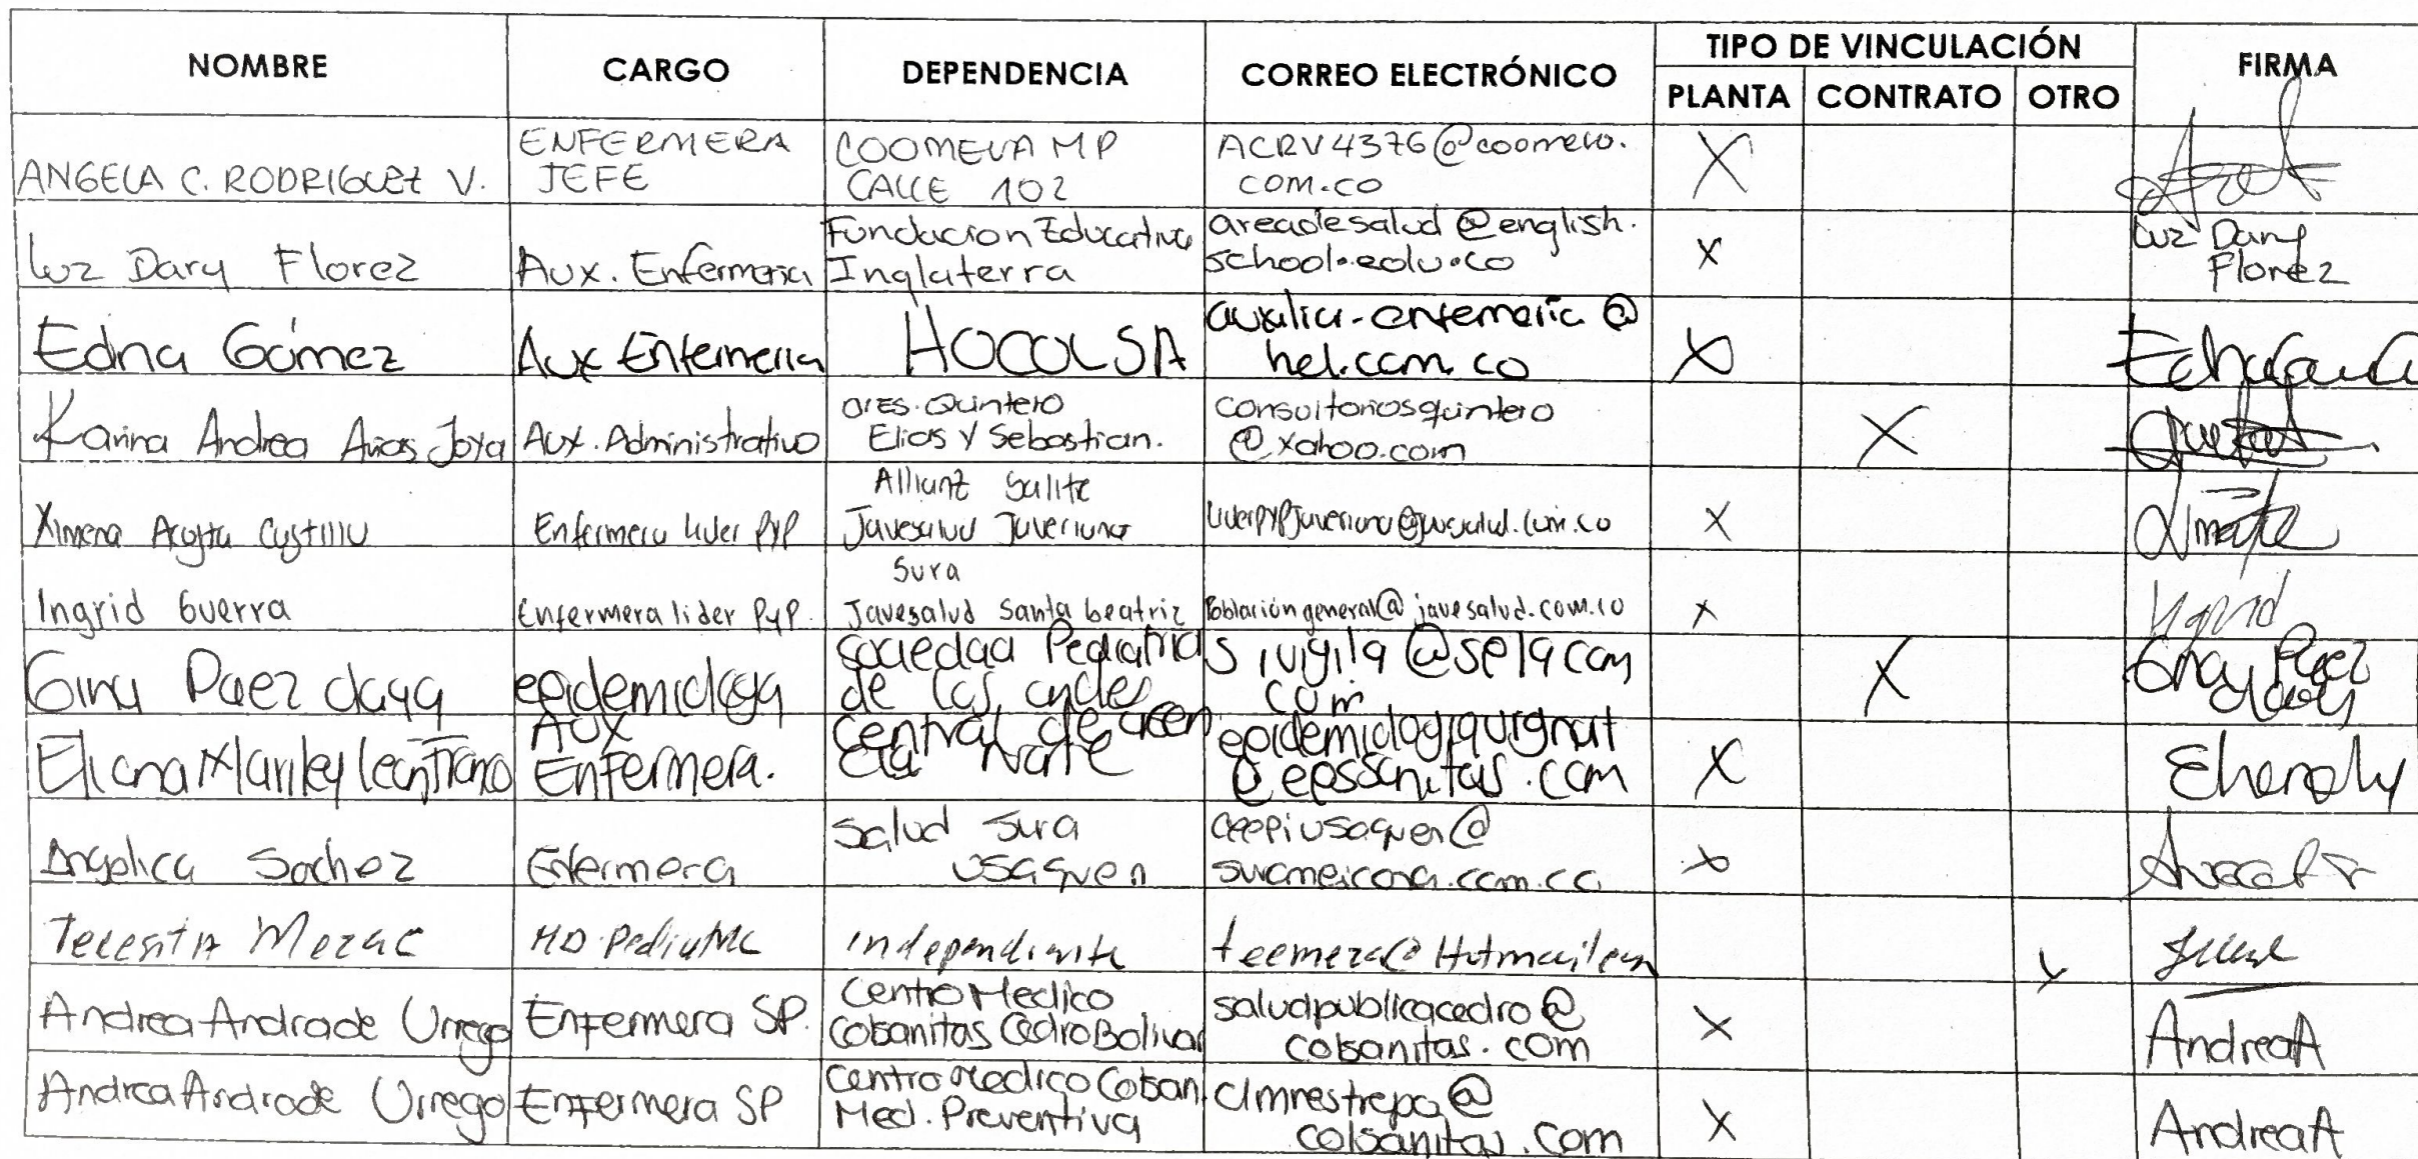 NOMBRE CARGO DEPENDENCIA CORREO ELECTRÓNICO TIPO DE VINCULACIÓN FIRMA
PLANTA CONTRATO OTRO
ANGELA C. RODRIGUEZ V. ENFERMERA JEFE COOMEVA MP CALLE 102 ACRV4376@coomeva.com.co X
Luz Dary Florez Aux. Enfermeria Fundacion Educativa Inglaterra areadesalud@english.school.edu.co X Luz Dary Florez
Edna Gómez Aux Enfermeria HOCOL SA hel.com.co X
Karina Andrea Arias Joya Aux. Administrativo Dres. Quintero Elias y Sebastian. consultoriosquintero@yahoo.com X
Ximena Acosta Castillo Enfermera lider PYP Allianz Salitre Javesalud Javeriana liderpypjaveriana@javesalud.com.co X
Ingrid Guerra Enfermera lider PyP. Sura Javesalud Santa beatriz Poblacióngeneral@javesalud.com.co X Ingrid
Gina Paez epidemiologa Sociedad Pediatrica de los andes X Gina Paez
Eliana Aux Enfermera. central de Norte @epssanitas.com X
Angelica Sachez Enfermera Salud Sura Usaquen X
Teresita Meza C MD Pediatra Independiente teemeza@Hotmail.com X
Andrea Andrade Urrego Enfermera SP. Centro Medico Colsanitas Cedro Bolivar saludpublicacedro@colsanitas.com X AndreaA
Andrea Andrade Urrego Enfermera SP Centro Medico Colsan. Med. Preventiva clmrestrepo@colsanitas.com X AndreaA